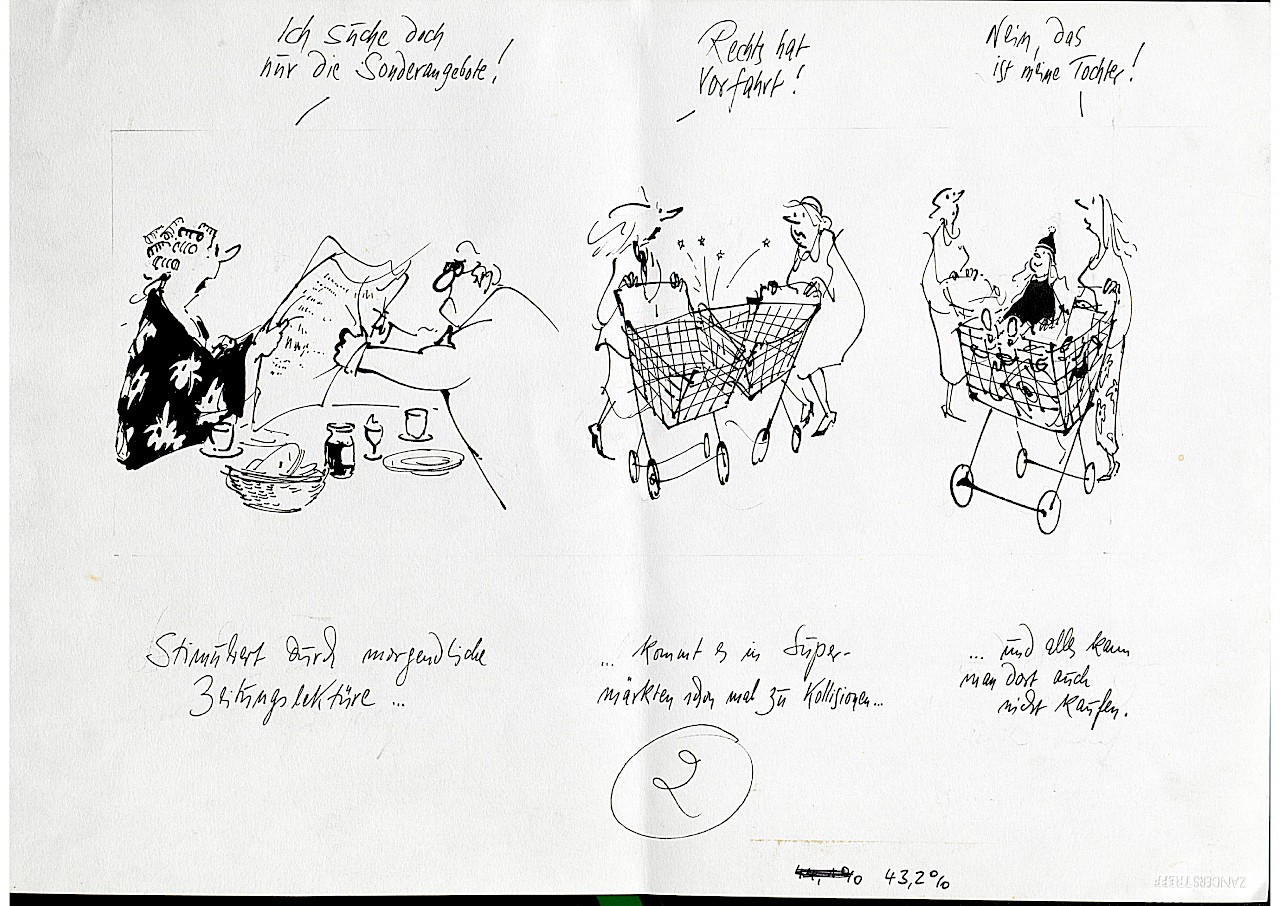 Ich suche doch
nur die Sonderangebote!
Rechts hat
Vorfahrt!
Nein, das
ist meine Tochter!
Stimuliert durch morgendliche
Zeitungslektüre ...
... kommt es in Super-
märkten schon mal zu Kollisionen...
... und alles kann
man dort auch
nicht kaufen.
2
43,2%
ZANDERS TREFF